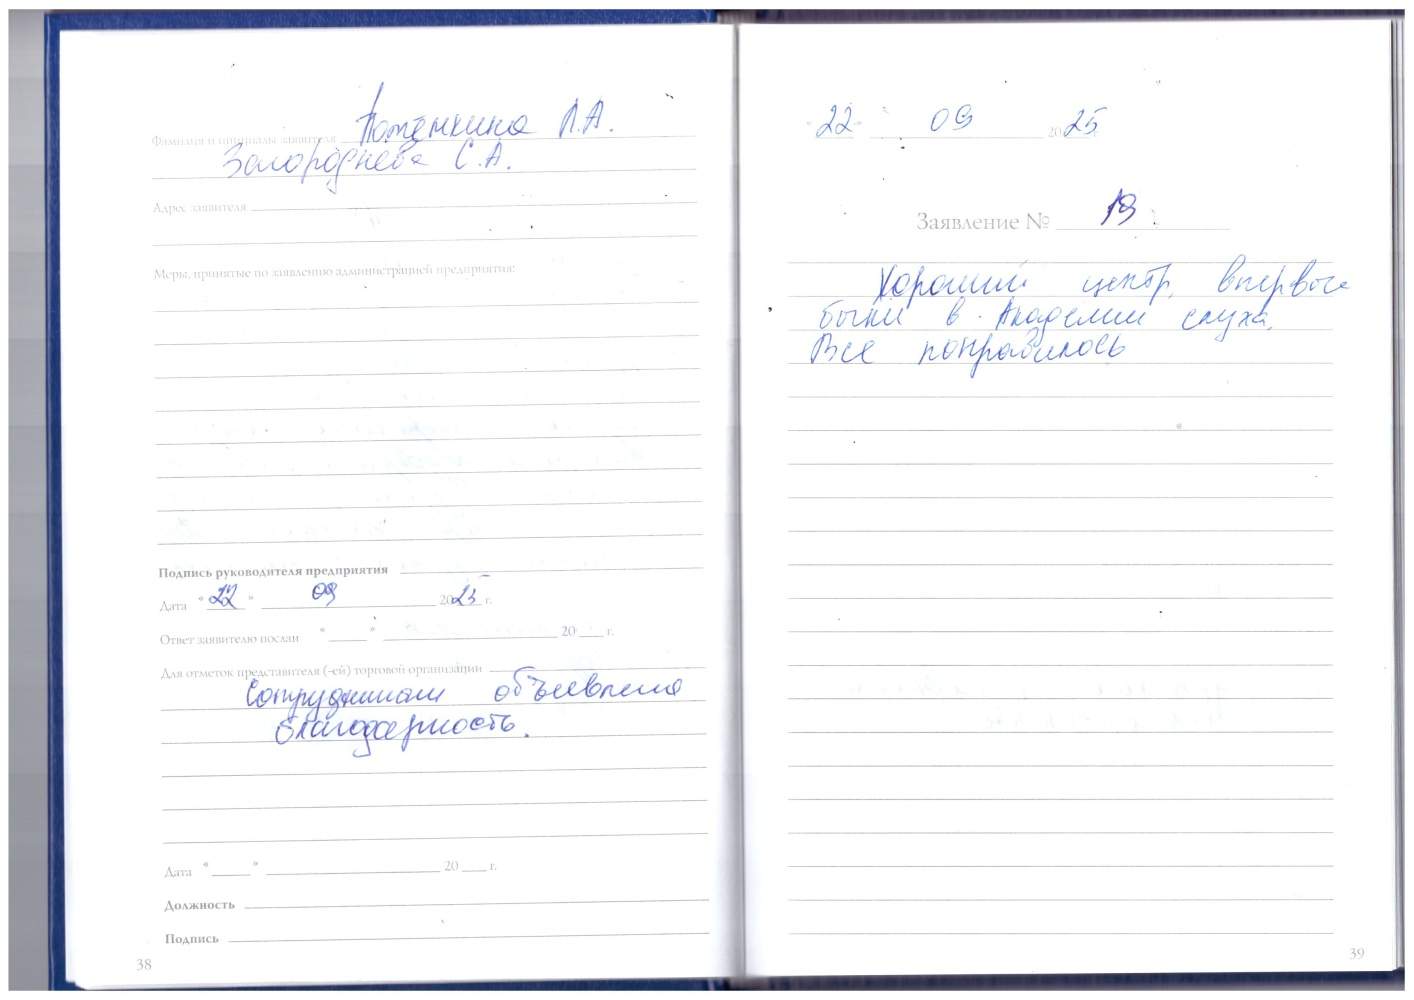 Фамилия и инициалы заявителя Потёмкина Л.А.
Загороднева С.А.
Адрес заявителя
Меры, принятые по заявлению администрацией предприятия:
Подпись руководителя предприятия
Дата "22" 09 2025 г.
Ответ заявителю послан "___" ___ 20___ г.
Для отметок представителя (-ей) торговой организации
Сотрудникам объявлена
благодарность.
Дата "___" ___ 20___ г.
Должность
Подпись
38
"22" 09 2025
Заявление № 19
Хороший центр, впервые
были в Академии слуха.
Все понравилось
39